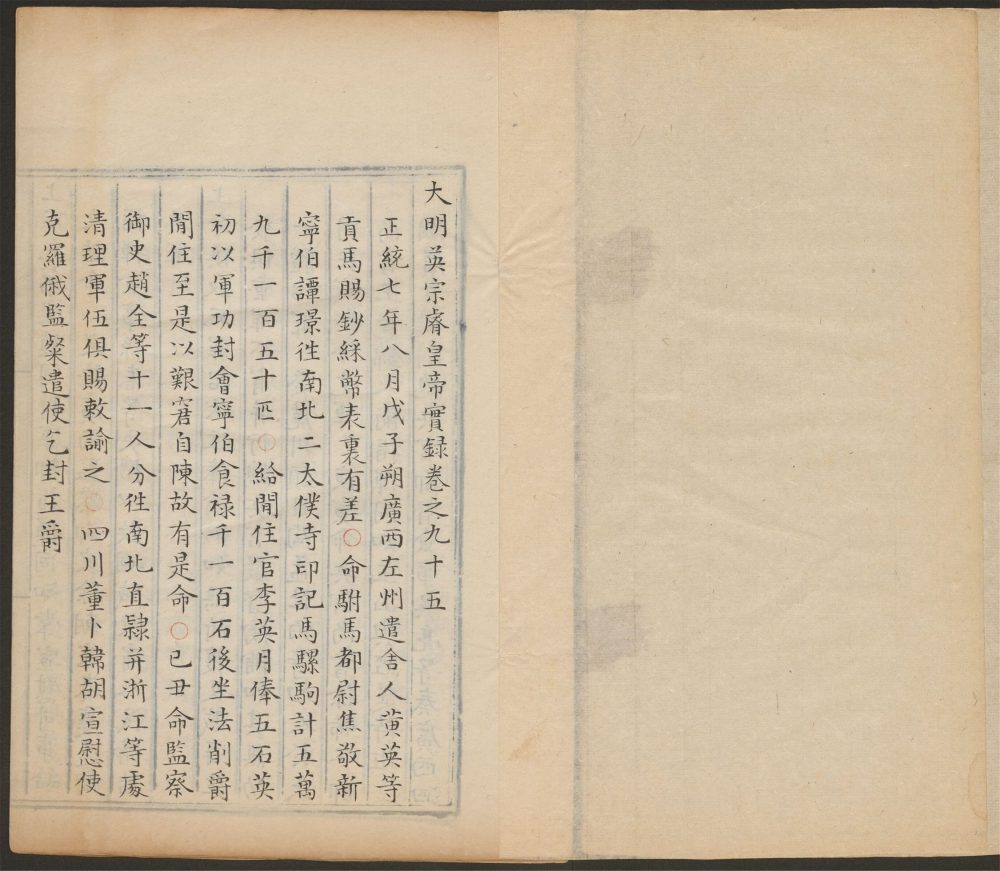 大明英宗睿皇帝實録卷之九十五
正統七年八月戊子朔廣西左州遣舍人黄英等
貢馬賜鈔綵幣表裏有差○命駙馬都尉焦敬新
寧伯譚璟徃南北二太僕寺印記馬騾駒計五萬
九千一百五十匹○給閒住官李英月俸五石英
初以軍功封會寧伯食禄千一百石後坐法削爵
閒住至是以艱窘自陳故有是命○己丑命監察
御史趙全等十一人分徃南北直隸并浙江等處
清理軍伍俱賜敕諭之○四川董卜韓胡宣慰使
克羅俄監粲遣使乞封王爵